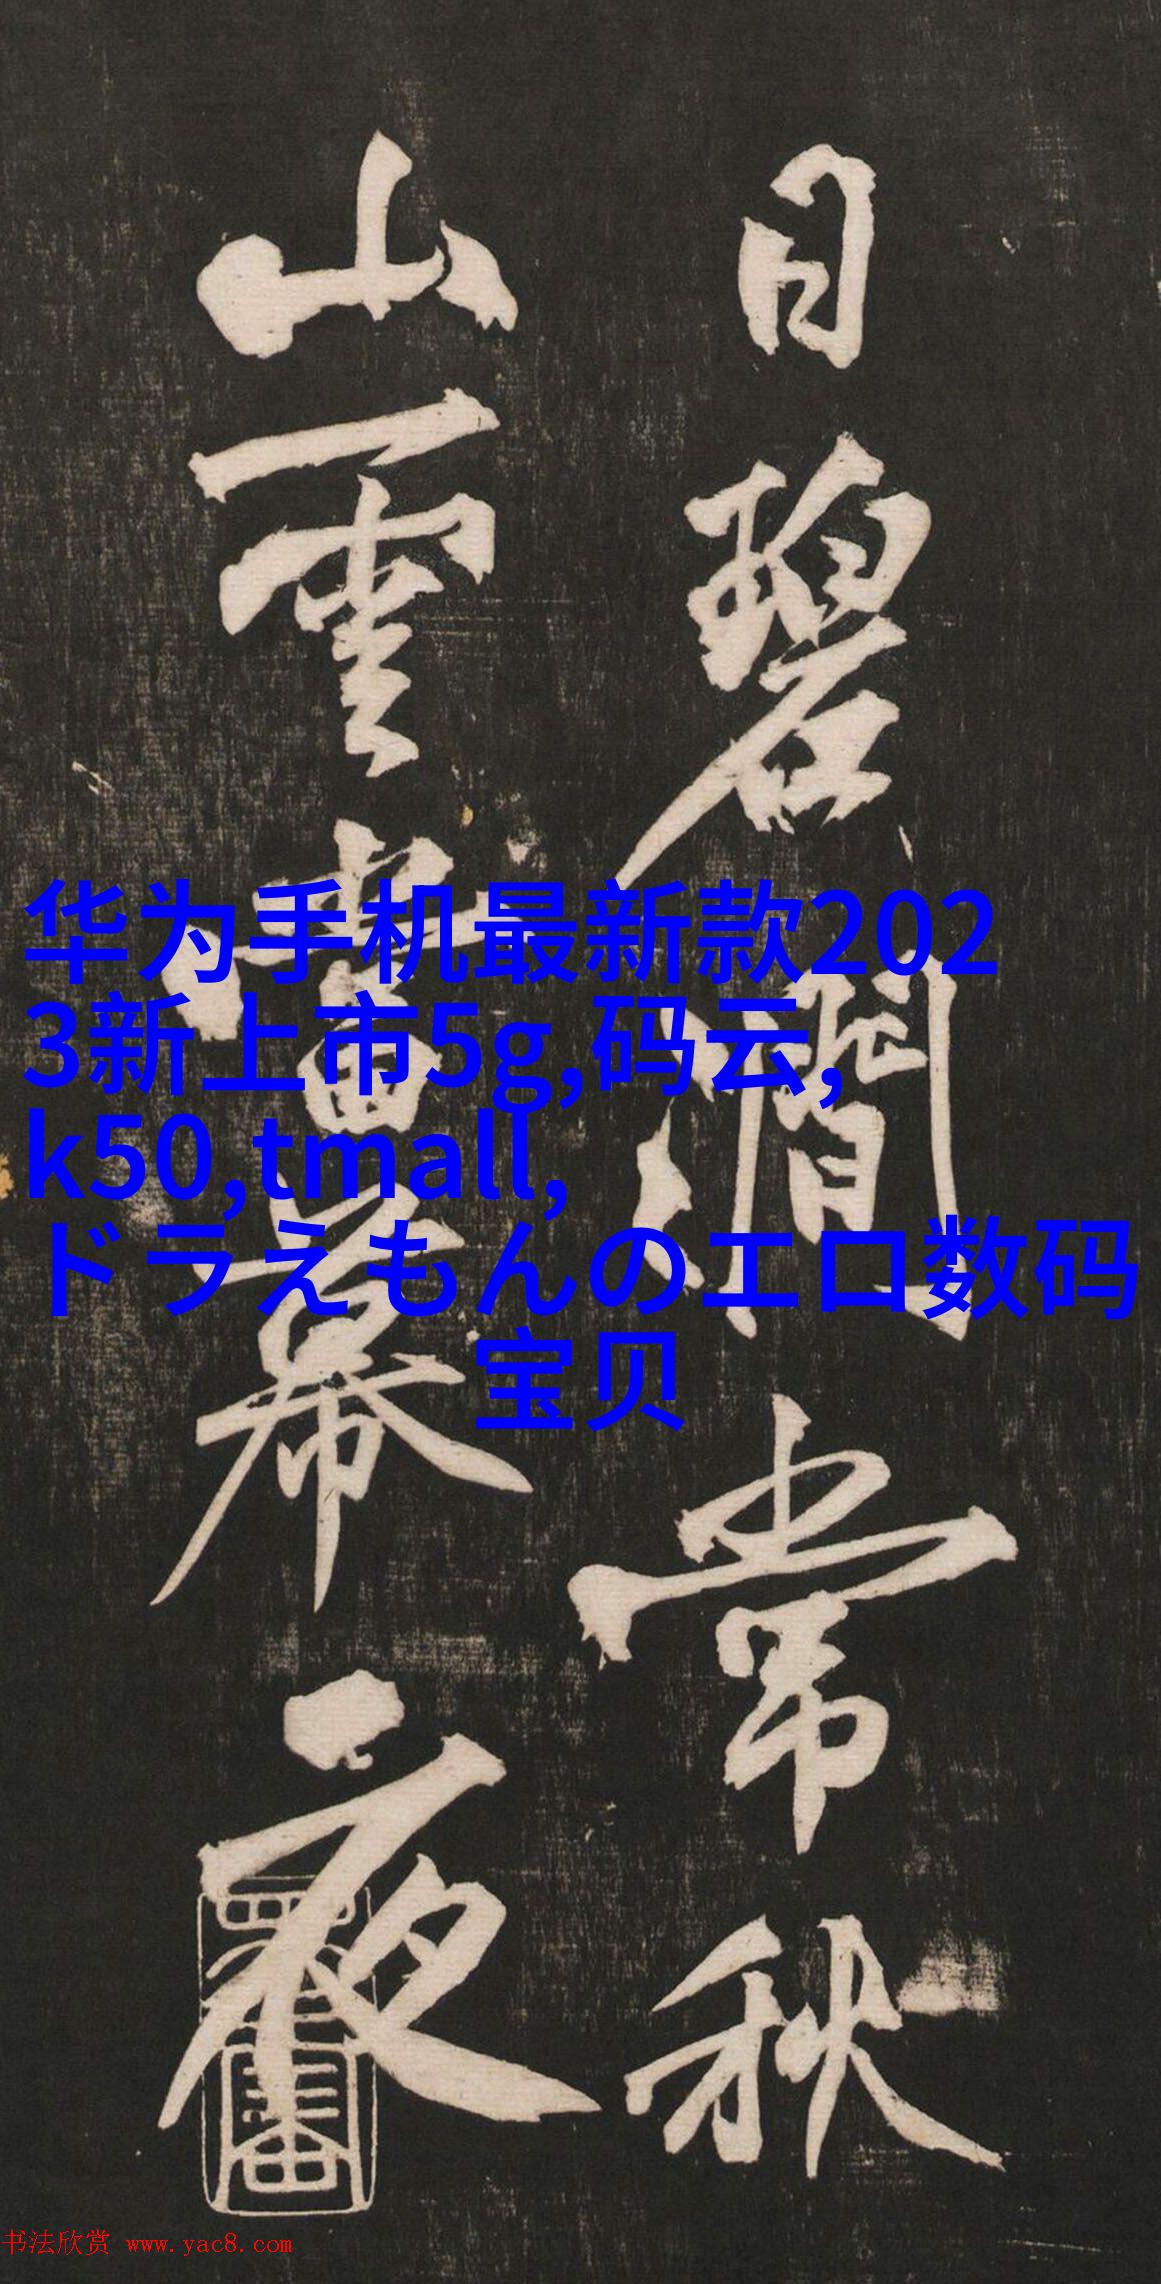 日碧澗常秋
山雲幕夜
华为手机最新款202
3新上市5g,码云,
k50,tmall,
ドラえもんのエロ数码
宝贝
书法欣赏 www.yac8.com